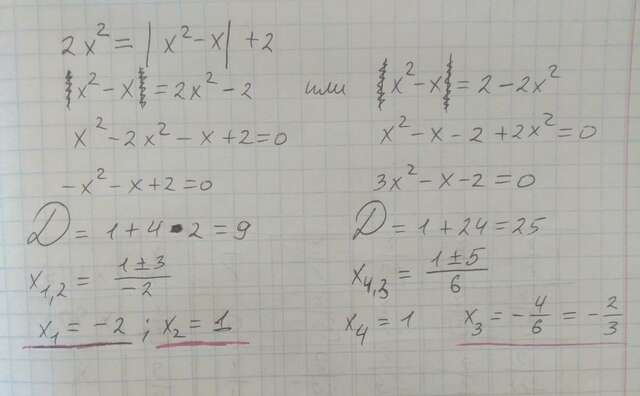 2x² = |x² - x| + 2
x² - x = 2x² - 2 или x² - x = 2 - 2x²
x² - 2x² - x + 2 = 0 x² - x - 2 + 2x² = 0
-x² - x + 2 = 0 3x² - x - 2 = 0
D = 1 + 4 · 2 = 9 D = 1 + 24 = 25
x₁,₂ = (1 ± 3)/(-2) x₄,₃ = (1 ± 5)/6
x₁ = -2 ; x₂ = 1 x₄ = 1 x₃ = -4/6 = -2/3